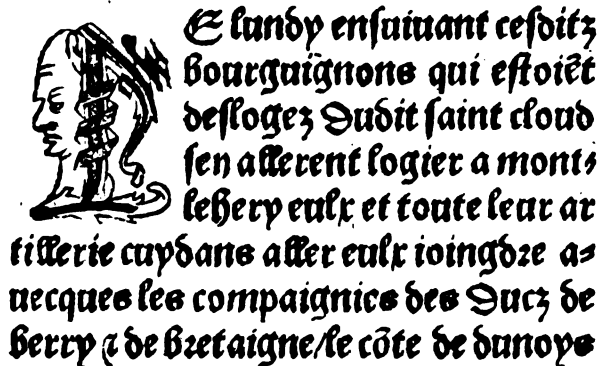 LE lundy ensuiuant cesditz
bourguignons qui estoiẽt
deslogez Dudit saint cloud
sen allerent logier a mont⸗
lehery eulx et toute leur ar
tillerie cuydans aller eulx ioingdre a⸗
uecques les compaignies des Ducz de
berry ⁊ de bretaigne/le cõte de dunoys